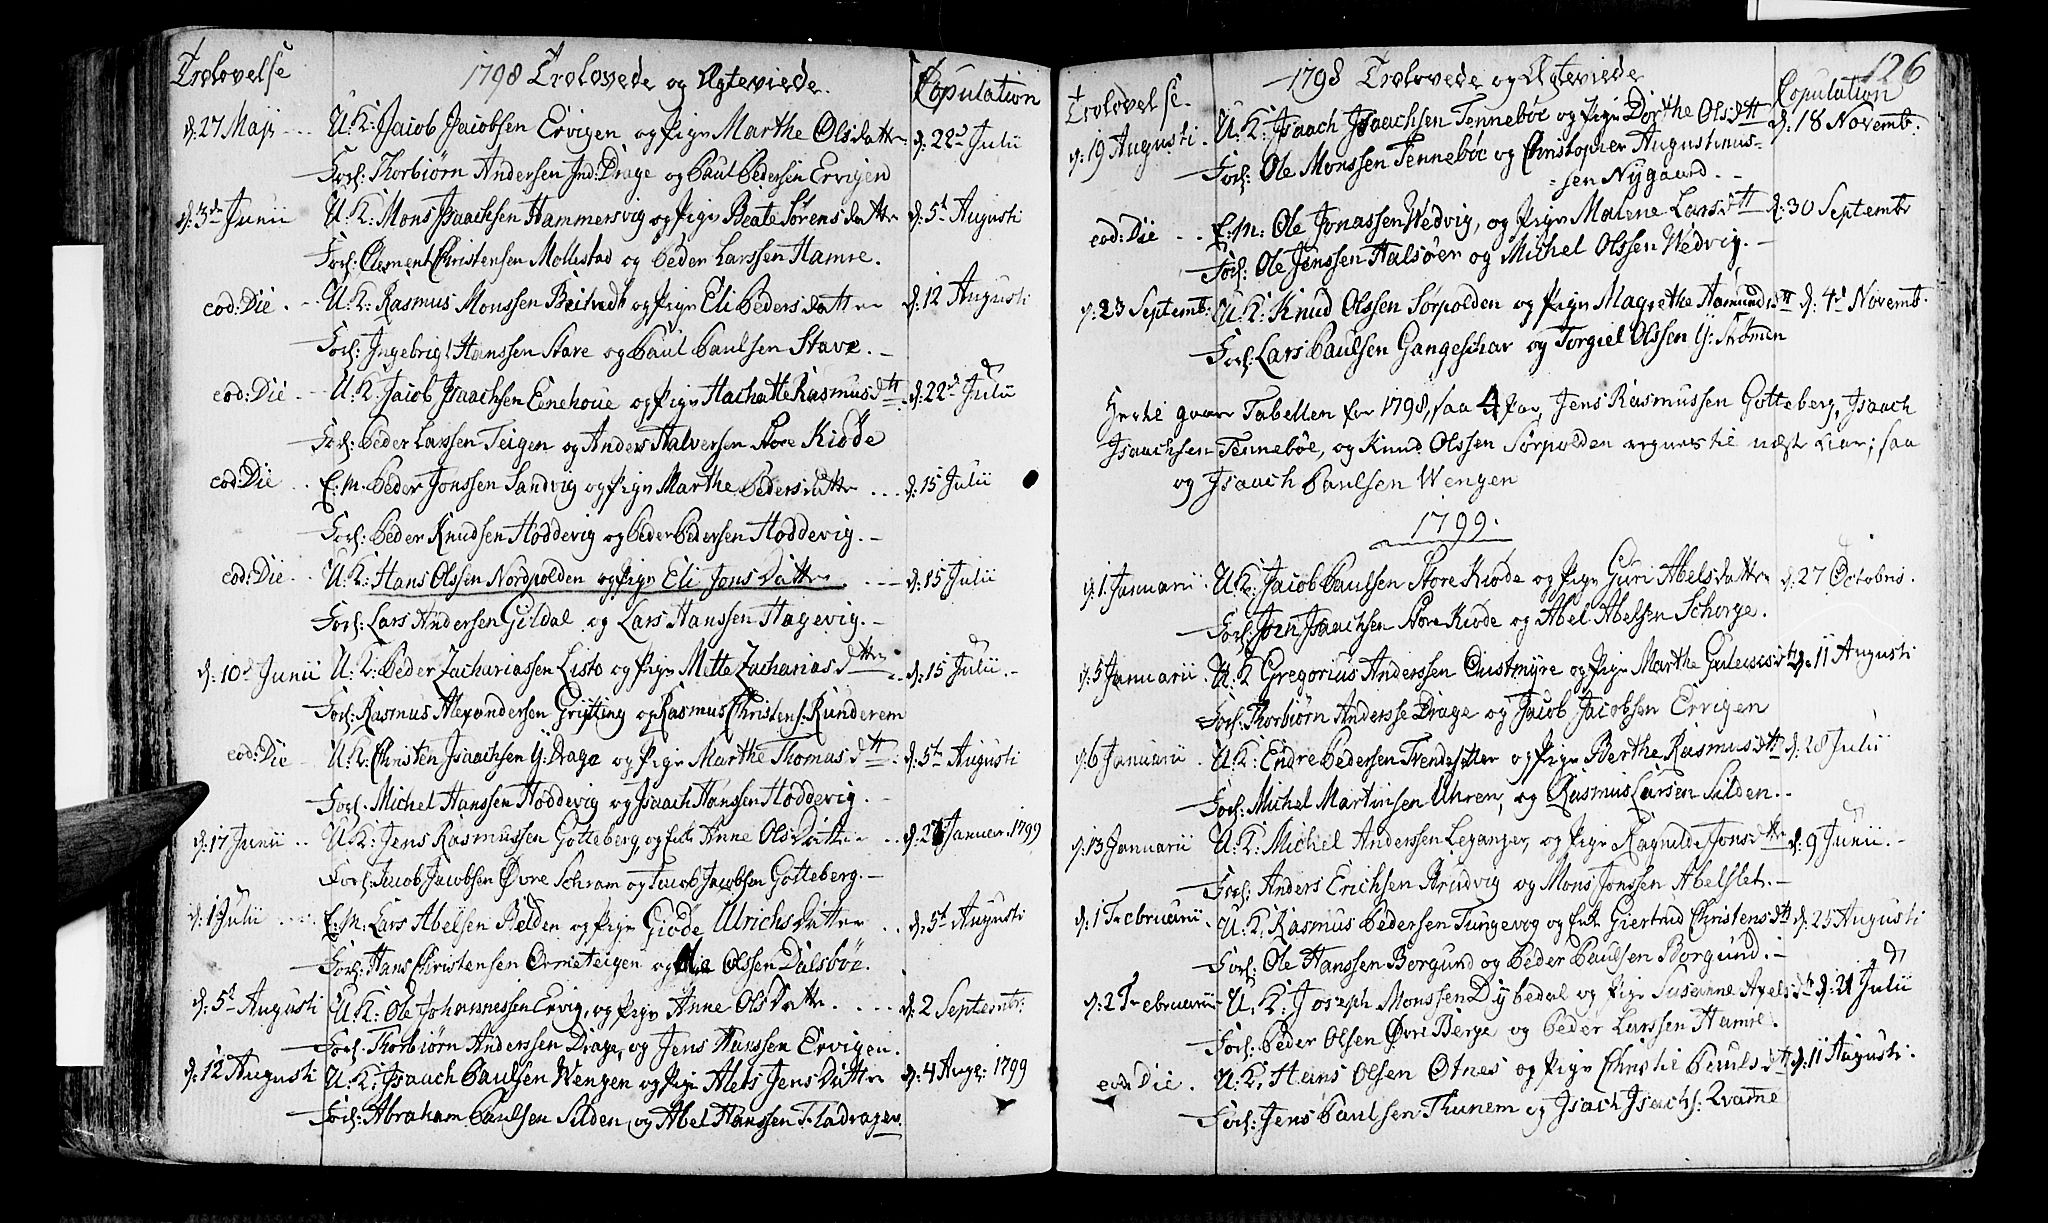 Trolovelse
1798 Trolovede og Ægteviede.
Copulation
d: 27 Maji - - - U: K: Jacob Jacobsen Ervigen og Pige Marthe Olsdatter d: 22d Julii
Forl: Thorbiørn Andersen Ind: Drage og Paul Pedersen Ervigen
d: 3de Junii U: K: Mons Isaachsen Hammersvig og Pige Beate Sørensdatter d: 5t Augusti
Forl: Clement Christensen Mollestad og Peder Larssen Hamre.
eod: Die. - U: K: Rasmus Monssen og Pige Eli Pedersdatter d: 12 Augusti
Forl: Ingebrigt Hanssen Stave og Paul Paulsen Stave. -
eod: Die - - U: K Jacob Isaachsen Eenehoue og Pige Rasmusdtt d: 22d Julii
Forl: Peder Larssen Teigen og Anders Halversen Store Kiøde
eod: Die - - E: M. Peder Jonssen Sandvig og Pige Marthe Pedersdatter . . . d: 15 Julii
Forl: Peder Knudsen Hoddevig og Peder Pedersen Hoddevig. -
eod: Die - - U: K: Hans Olssen Nordpolden og Pige Eli Jonsdatter. - - - d: 15 Julii
Forl: Lars Andersen Gildal og Lars Hanssen Hagevig. -
d: 10d Junii U: K: Peder Zachariassen Listo og Pige Mette Zachariasdtter d: 15 Julii. -
Forl: Rasmus Alexandersen Grytting og Rasmus Christens: Runderem
eod: Die - U: K: Christen Isaachsen Y: Drage og Pige Marthe Thomasdtt: d: 5t Augusti
Forl: Michel Hanssen Hoddevig og Isaach Hanssen Hoddevig. -
d: 17 Junii . . U: K: Jens Rasmussen Gotteberg, og Enk Anne Olsdatter - . . d: 27 Januar: 1799
Forl: Jacob Jacobsen Øvre Schram og Jacob Jacobsen Gotteberg. -
d: 1 Julii . . . . E: M: Lars Abelsen Helden og Pige Giøde Ulrichsdatter . . d: 5t Augusti
Forl: Hans Christensen Ormeteigen og Ole Olssen Dalsbøe.
d: 5t Augusti U: K: Ole Johannessen Ervig, og Pige Anne Olsdatter. - - - d: 2 Septembr:
Forl: Thorbiørn Anderssen Drage, og Jens Hanssen Ervigen.
d: 12 Augusti U: K: Isaach Paulsen Wengen og Pige Alets Jensdatter d: 4 Aug: 1799
Forl: Abraham Paulsen Silden og Abel Hanssen Fladragen.
126
Trolovelse.
1798 Trolovede og Ægteviede
Copulation
d: 19 Augusti. U: K: Isaach Isaachsen Tennebøe og Pige Dorthe Olsdtt d: 18 Novemb:
Forl: Ole Monssen Tennebøe og Christopher Augustinus-
=sen Nygaard. -
eod: Die - - E: M: Ole Jonassen Wedvig, og Pige Malene Larsdtt d: 30 Septembr
Forl: Ole Jenssen Halsøer og Michel Olssen Wedvig. -
d: 23 Septemb: U: K: Knud Olssen Sørpolden og Pige Magrethe Aamundsdtt d: 4d Novemb.
Forl: Lars Paulsen Gangeschar og Torgiel Olssen Y: Strømen
Hertil gaaer Tabellen for 1798, saa 4 Par, Jens Rasmussen Gotteberg, Isaach
Isaachsen Tennebøe, og Knud Olssen Sørpolden regnes til næst aar; saa
og Isaach Paulsen Wengen
1799.
d: 1 Januarii U: K: Jacob Paulsen Store Kiøde og Pige Guri Abelsdatter d: 27 Octobris.
Forl: Joen Isaachsen Store Kiøde og Abel Abelsen Schorge.
d: 5 Januarii. U: K Gregorius Anderssen Oustmyre og Pige Marthe dtt d: 11 Augusti
Forl: Thorbiørn Andersse Drage og Jacob Jacobsen Ervigen
d: 6 Januarii . U: K: Endre Pedersen Trendesetter og Pige Berthe Rasmusdtt d: 28 Julii
Forl: Michel Martinsen Uhren, og Rasmus Larsen Silden. -
d: 13 Januarii U: K: Michel Anderssen Leganger, og Pige Ragnilde Jonsdtter d: 9 Junii. -
Forl: Anders Erichsen Brudvig og Mons Jonssen Abelslet. -
d: 1 Februarii. U: K: Rasmus Pedersen Tungevog og Enk Giertrud Christensdtt d: 25 Augusti
Forl: Ole Hanssen Borgund og Peder Paulsen Borgund. -
d: 2 Februarii U: K: Joseph Monssen Dybedal og Pige Susanne Axelsdtt d: 21 Julii
Forl: Peder Olsen Øvre Berge og Peder Larssen Hamre.
eod: Die. U: K. Hans Olsen Otnes og Pige Christie Paulsdtt d: 11 Augusti.
Forl: Jens Paulsen Thunem og Isach Isachs: Qvame